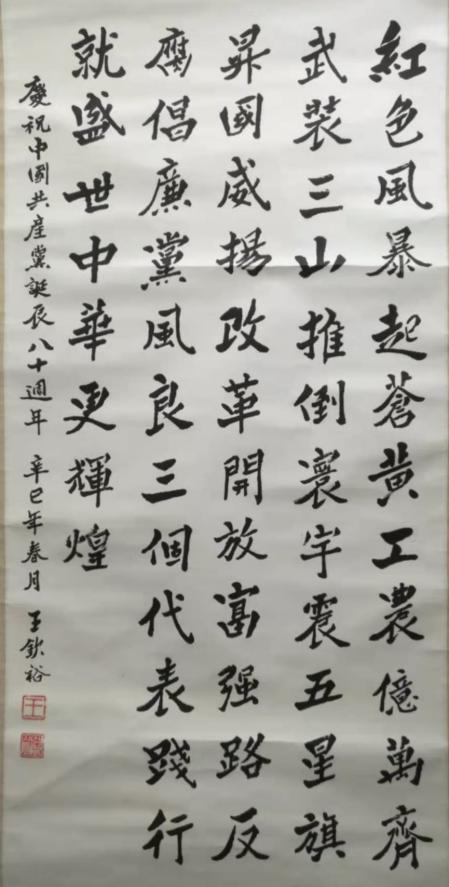 紅色風暴起蒼黄工農億萬齊
武裝三山推倒寰宇震五星旗
昇國威揚改革開放富强路反
腐倡廉黨風良三個代表踐行
就盛世中華更輝煌
慶祝中國共產黨誕辰八十週年 辛巳年春月 王欽裕
王